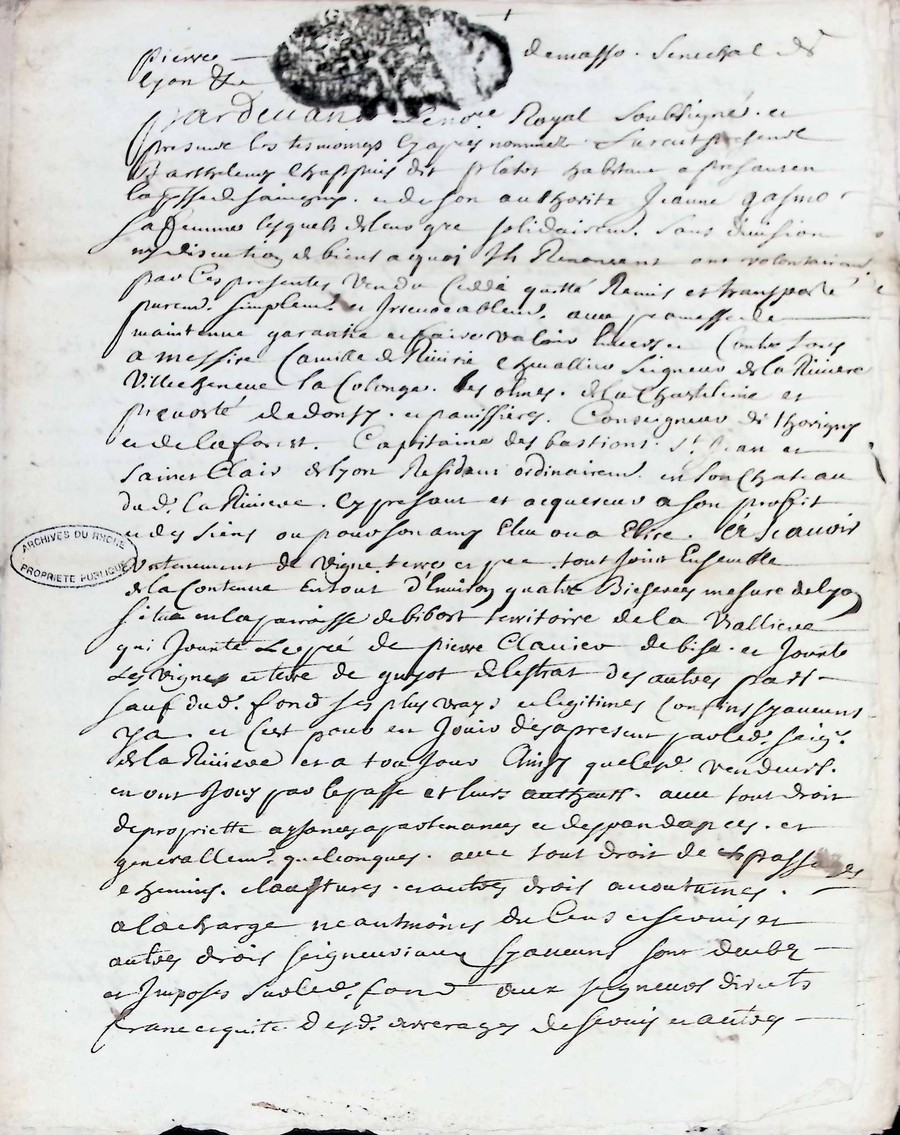 pierre demasso . senechal de
lyon &c
Pardevant Le no.re Royal Soubsigné . et
presance les tesmoings cy apres nommez Furent presents
Barthelemy Chappuis dit platot habitant a present en
la ppe de savigny . et de son authorité Jeanne gasmo
sa femme lesquels de leur gre solidairem.t sans division
ny discution de biens a quoi Ils Renoncent ont volontairem.t
par ces presentes Vendu Ceddé quitté Remis et transporté
purem.t simplem.t et Irrevocablem.t avec promesse de
maintenue garantie et faire valoir envers et Contre tous
a messire Camille de Riverie chevallier Seigneur de la Riviere
Villecheneve la Colonge . les olmes . de la Chastelenie et
prevosté de donsy . et panissieres . Conseigneur de thorigny
et de la forest . Capitaine des bastions . St. Jean et
Sainct Clair de lyon Resident ordinairem.t en son Chateau
du d. la Riviere . Cy present et acquereur a son proffit
et des siens ou pour son amy Eleu ou a Elire . Et Scavoir
Un tenement de vigne terre et pre . tout Joint Ensemble
de la Contenue En tout d'Environ quatre Bicherees mesure de lyon
situe en la parroisse de bibost territoire de la Valliere
qui Jouxte Le pré de pierre Clavier de bise . et Jouxte
Les vignes et terre de guyot de lestrat des autres parts
sauf du d. fond ses plus vrays et legitimes Confins sy aucuns
y a . et C'est pour en Jouir des a present par le d. seig.r
de la Riviere et a tou Jour Ainsy que les d. vendeurs .
en ont Jouy par le passe et leurs autheurs . avec tout droit
de propriette aysances apartenances et despandances . et
generallem.t quelconques . avec tout droit de passages
chemins . claustures . et autres drois acoutumes .
a la charge neantmoins du Cens et servis et
autres drois seigneuriaux sy aucuns sont deubz
et Imposes sur le d. fond aux seigneurs directs
franc et quite des d. arrerages de servis et autres
ARCHIVES DU RHÔNE
PROPRIÉTÉ PUBLIQUE